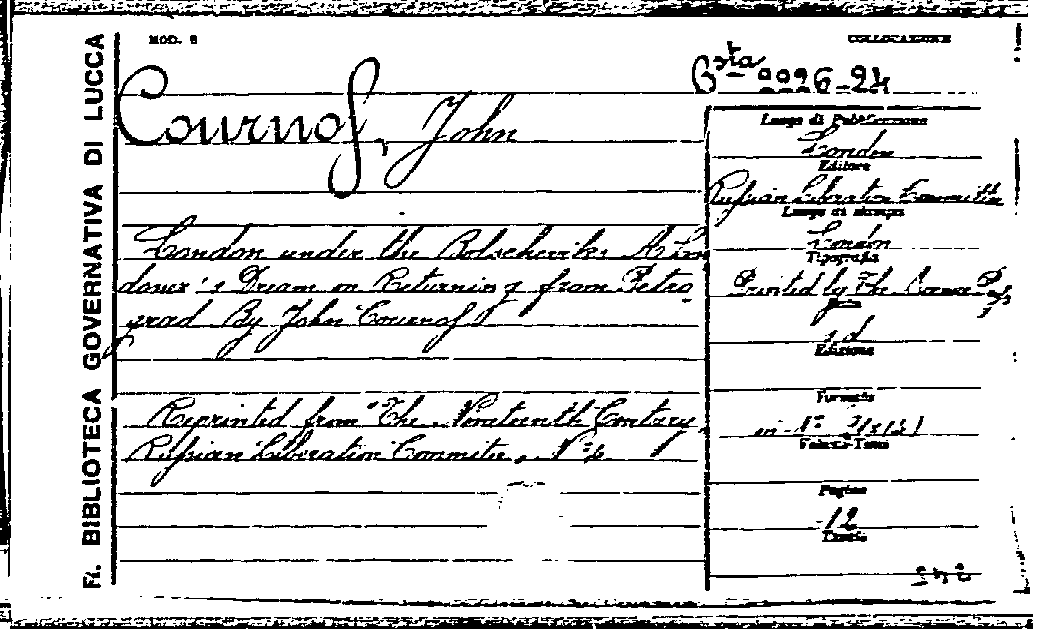 FI. BIBLIOTECA GOVERNATIVA DI LUCCA
MOD. 8
COLLOCAZIONE
Bsta 9926-24
Cournof, John
London under the Bolscheviks A Lon
doner's Dream on Returning from Petro
grad By John Cournof
Reprinted from "The Nineteenth Century
Russian Liberation Committee, N°
Luogo di Pubblicazione
London
Editore
Russian Liberation Committee
Luogo di stampa
London
Tipografia
Printed by The
s.d
Edizione
Formato
in N°
Volumi-Tomi
Pagine
12